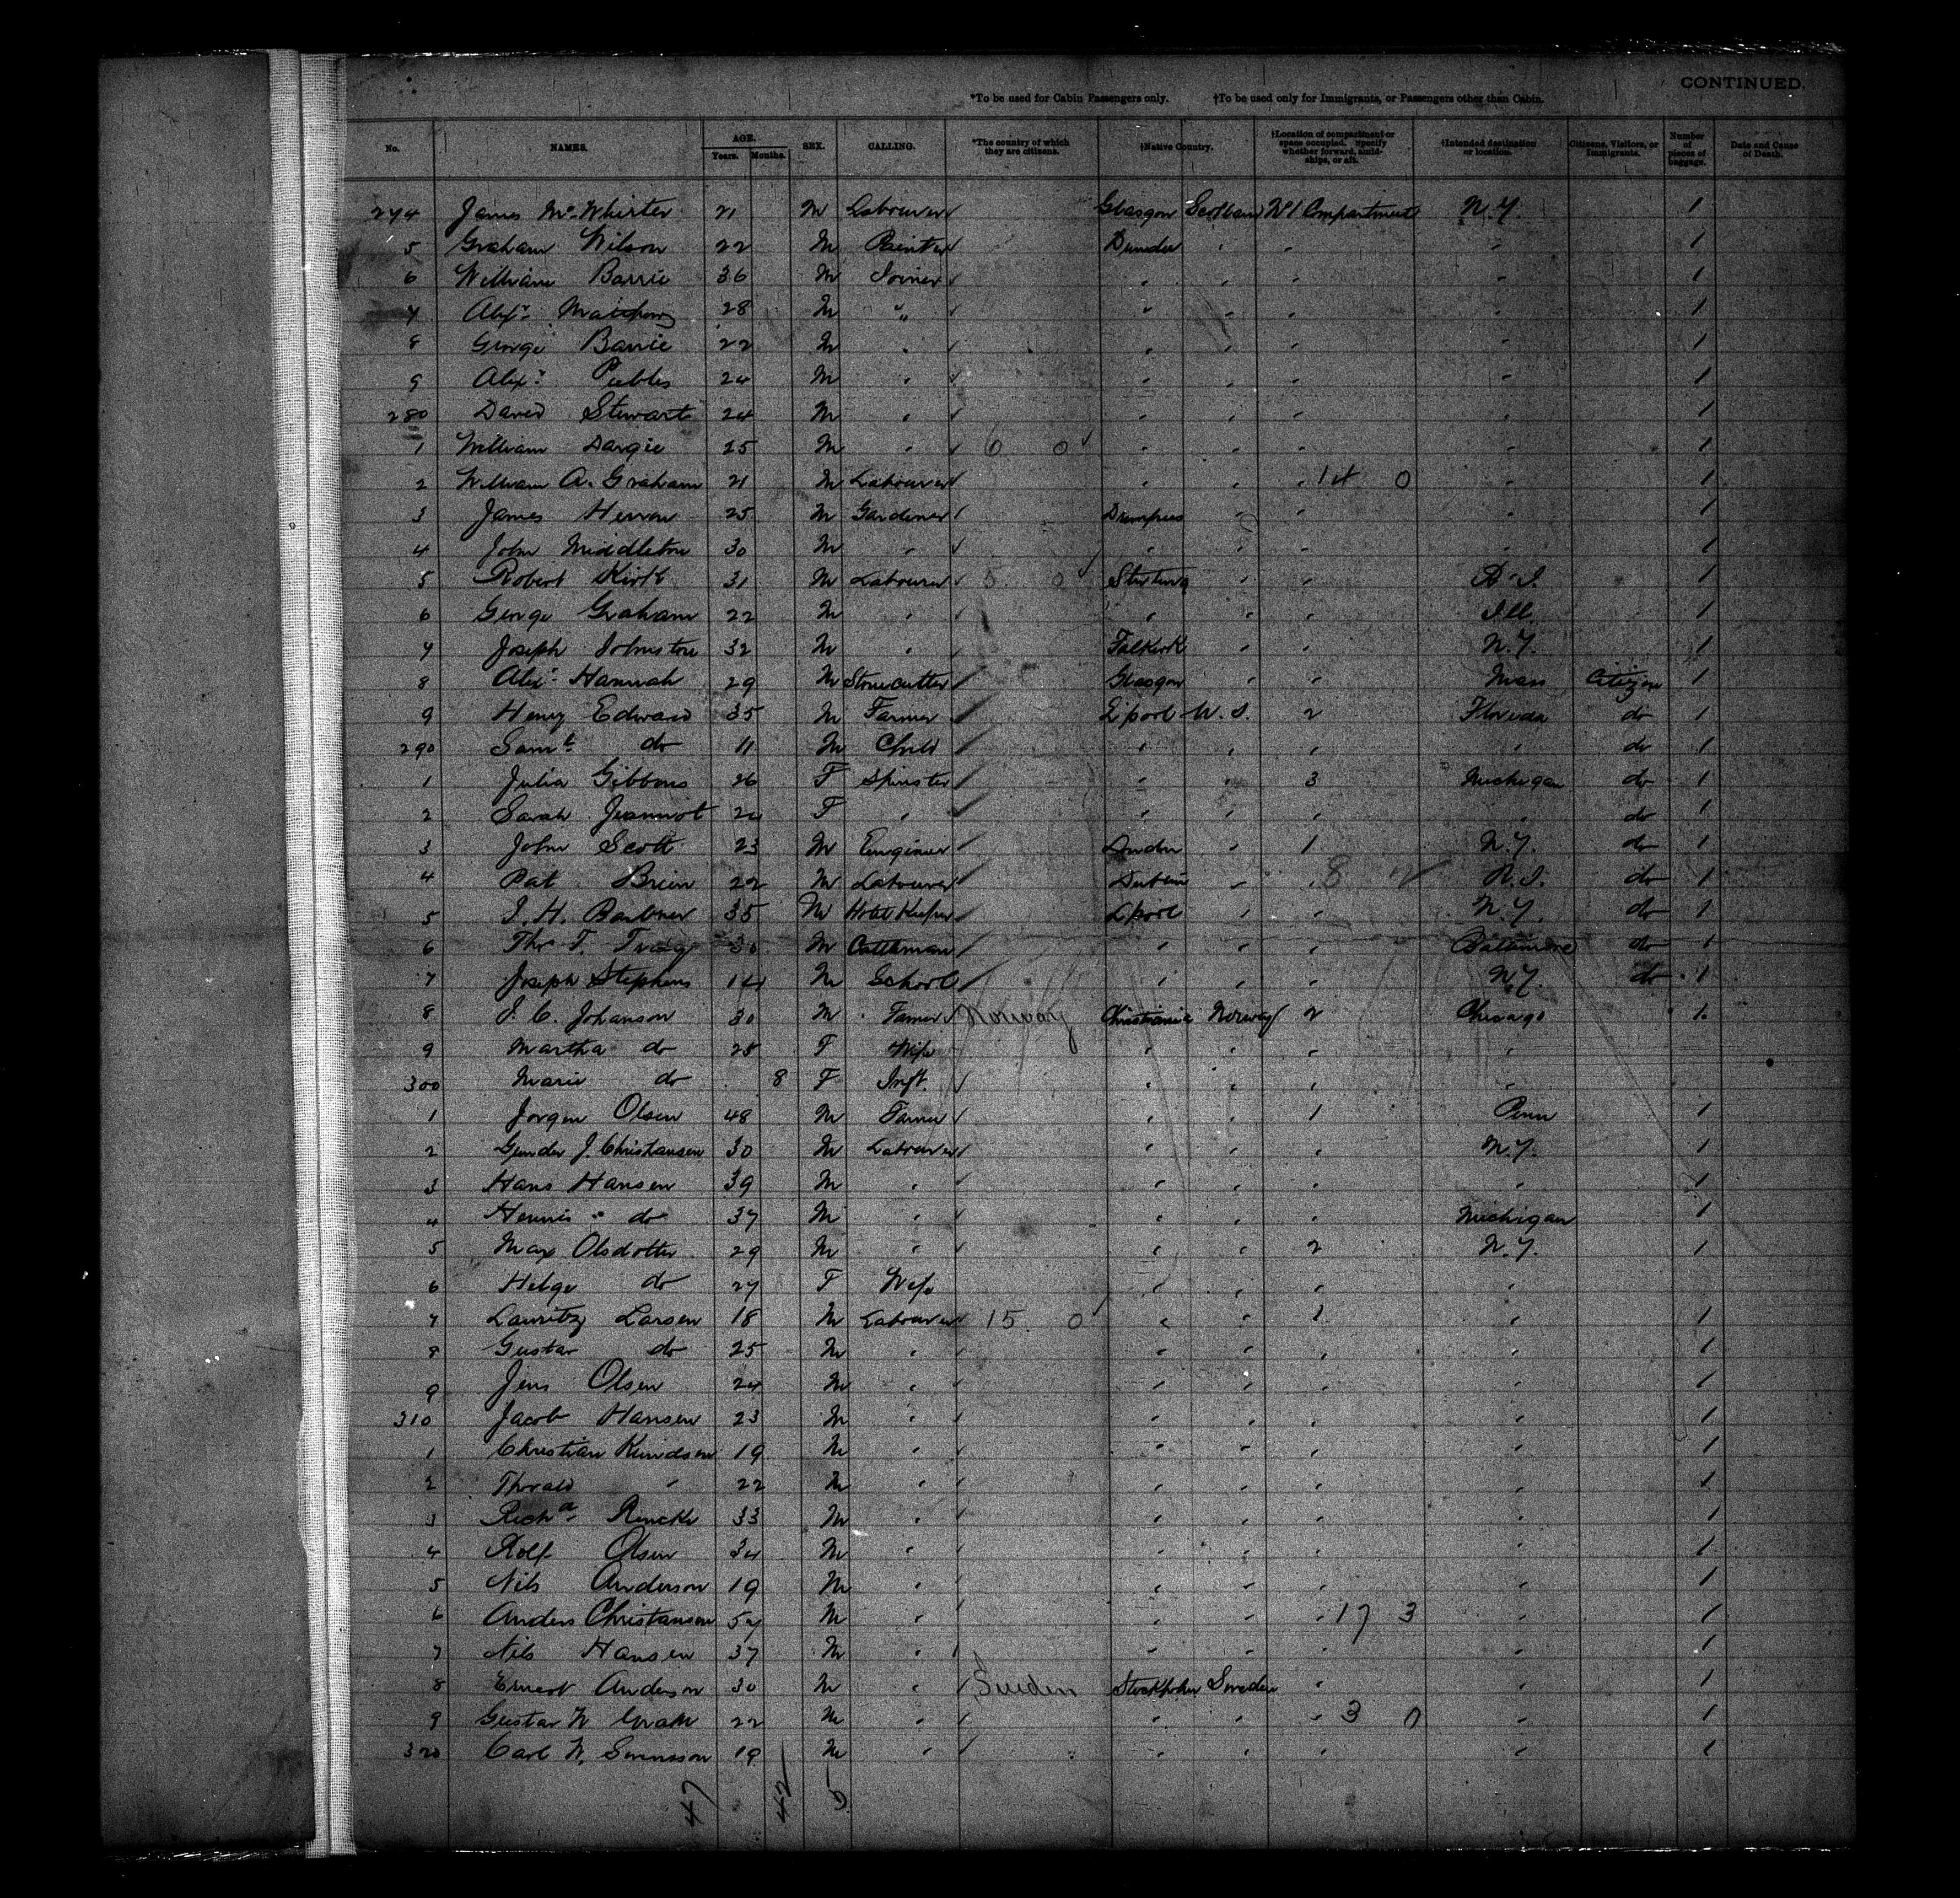 CONTINUED.
*To be used for Cabin Passengers only. †To be used only for Immigrants, or Passengers other than Cabin.
No. NAMES. AGE. Years. Months. SEX. CALLING. *The country of which they are citizens. †Native Country. †Location of compartment or space occupied. Specify whether forward, amidships, or aft. †Intended destination or location. Citizens, Visitors, or Immigrants. Number of pieces of baggage. Date and Cause of Death.
274 James McWhirter 21 M Labourer Glasgow Scotland No 1 Compartment N.Y. 1
5 Graham Wilson 22 M Painter Dundee " " " 1
6 William Barrie 36 M Joiner " " " " 1
7 Alexr. Matthew 28 M " " " " " 1
8 George Barrie 22 M " " " " " 1
9 Alexr. Peebles 24 M " " " " " 1
280 David Stewart 24 M " " " " " 1
1 William Dargie 25 M " 6 0 " " " " 1
2 William A. Graham 21 M Labourer " " " 14 0 " 1
3 James Herron 25 M Gardener Dumfries " " " 1
4 John Middleton 30 M " " " " " 1
5 Robert Kirk 31 M Labourer 5 0 Stirling " " R.I. 1
6 George Graham 22 M " " " " Ill 1
7 Joseph Johnston 32 M " Falkirk " " N.Y. 1
8 Alexr. Hannah 29 M Stonecutter Glasgow " " Mass Citizen 1
9 Henry Edward 35 M Farmer L'pool U.S. 2 Florida do 1
290 Saml. do 11 M Child " " " " do 1
1 Julia Gibbons 26 F Spinster " " 3 Michigan do 1
2 Sarah Jeannot 24 F " " " " " do 1
3 John Scott 23 M Engineer London " 1 N.Y. do 1
4 Pat Brien 22 M Labourer Dublin " " 8 R.I. do 1
5 J. H. 35 M Hotel Keeper L'pool " " N.Y. do 1
6 Thos T. 30 M Cattleman " " " Baltimore do 1
7 Joseph Stephens 14 M School " " " N.Y. do 1
8 J. C. Johanson 30 M Farmer Norway Christiania Norway 2 Chicago 1
9 Martha do 25 F Wife " " " "
300 Marie do 8 F Inft. " " " "
1 Jorgen Olsen 48 M Farmer " " 1 Penn 1
2 Gunder J. Christiansen 30 M Labourer " " " N.Y. 1
3 Hans Hansen 39 M " " " " " 1
4 do 37 M " " " " Michigan 1
5 Max Olsdotter 29 M " " " 2 N.Y. 1
6 Helge do 27 F Wife " " " "
7 Lauritz Larsen 18 M Labourer 15 0 " " 1 " 1
8 Gustav do 25 M " " " " " 1
9 Jens Olsen 24 M " " " " " 1
310 Jacob Hansen 23 M " " " " " 1
1 Christian Knudsen 19 M " " " " " 1
2 Thorald " 22 M " " " " " 1
3 Richd. Rencke 33 M " " " " " 1
4 Rolf Olsen 34 M " " " " " 1
5 Nils Anderson 19 M " " " " " 1
6 Anders Christanson 57 M " " " " 17 3 " 1
7 Nils Hansen 37 M " " " " 1
8 Ernest Anderson 30 M " Sweden Stockholm Sweden " " 1
9 Gustav W 22 M " " " " 3 0 " 1
320 Carl W. Svensson 19 M " " " " " 1
47 42 5